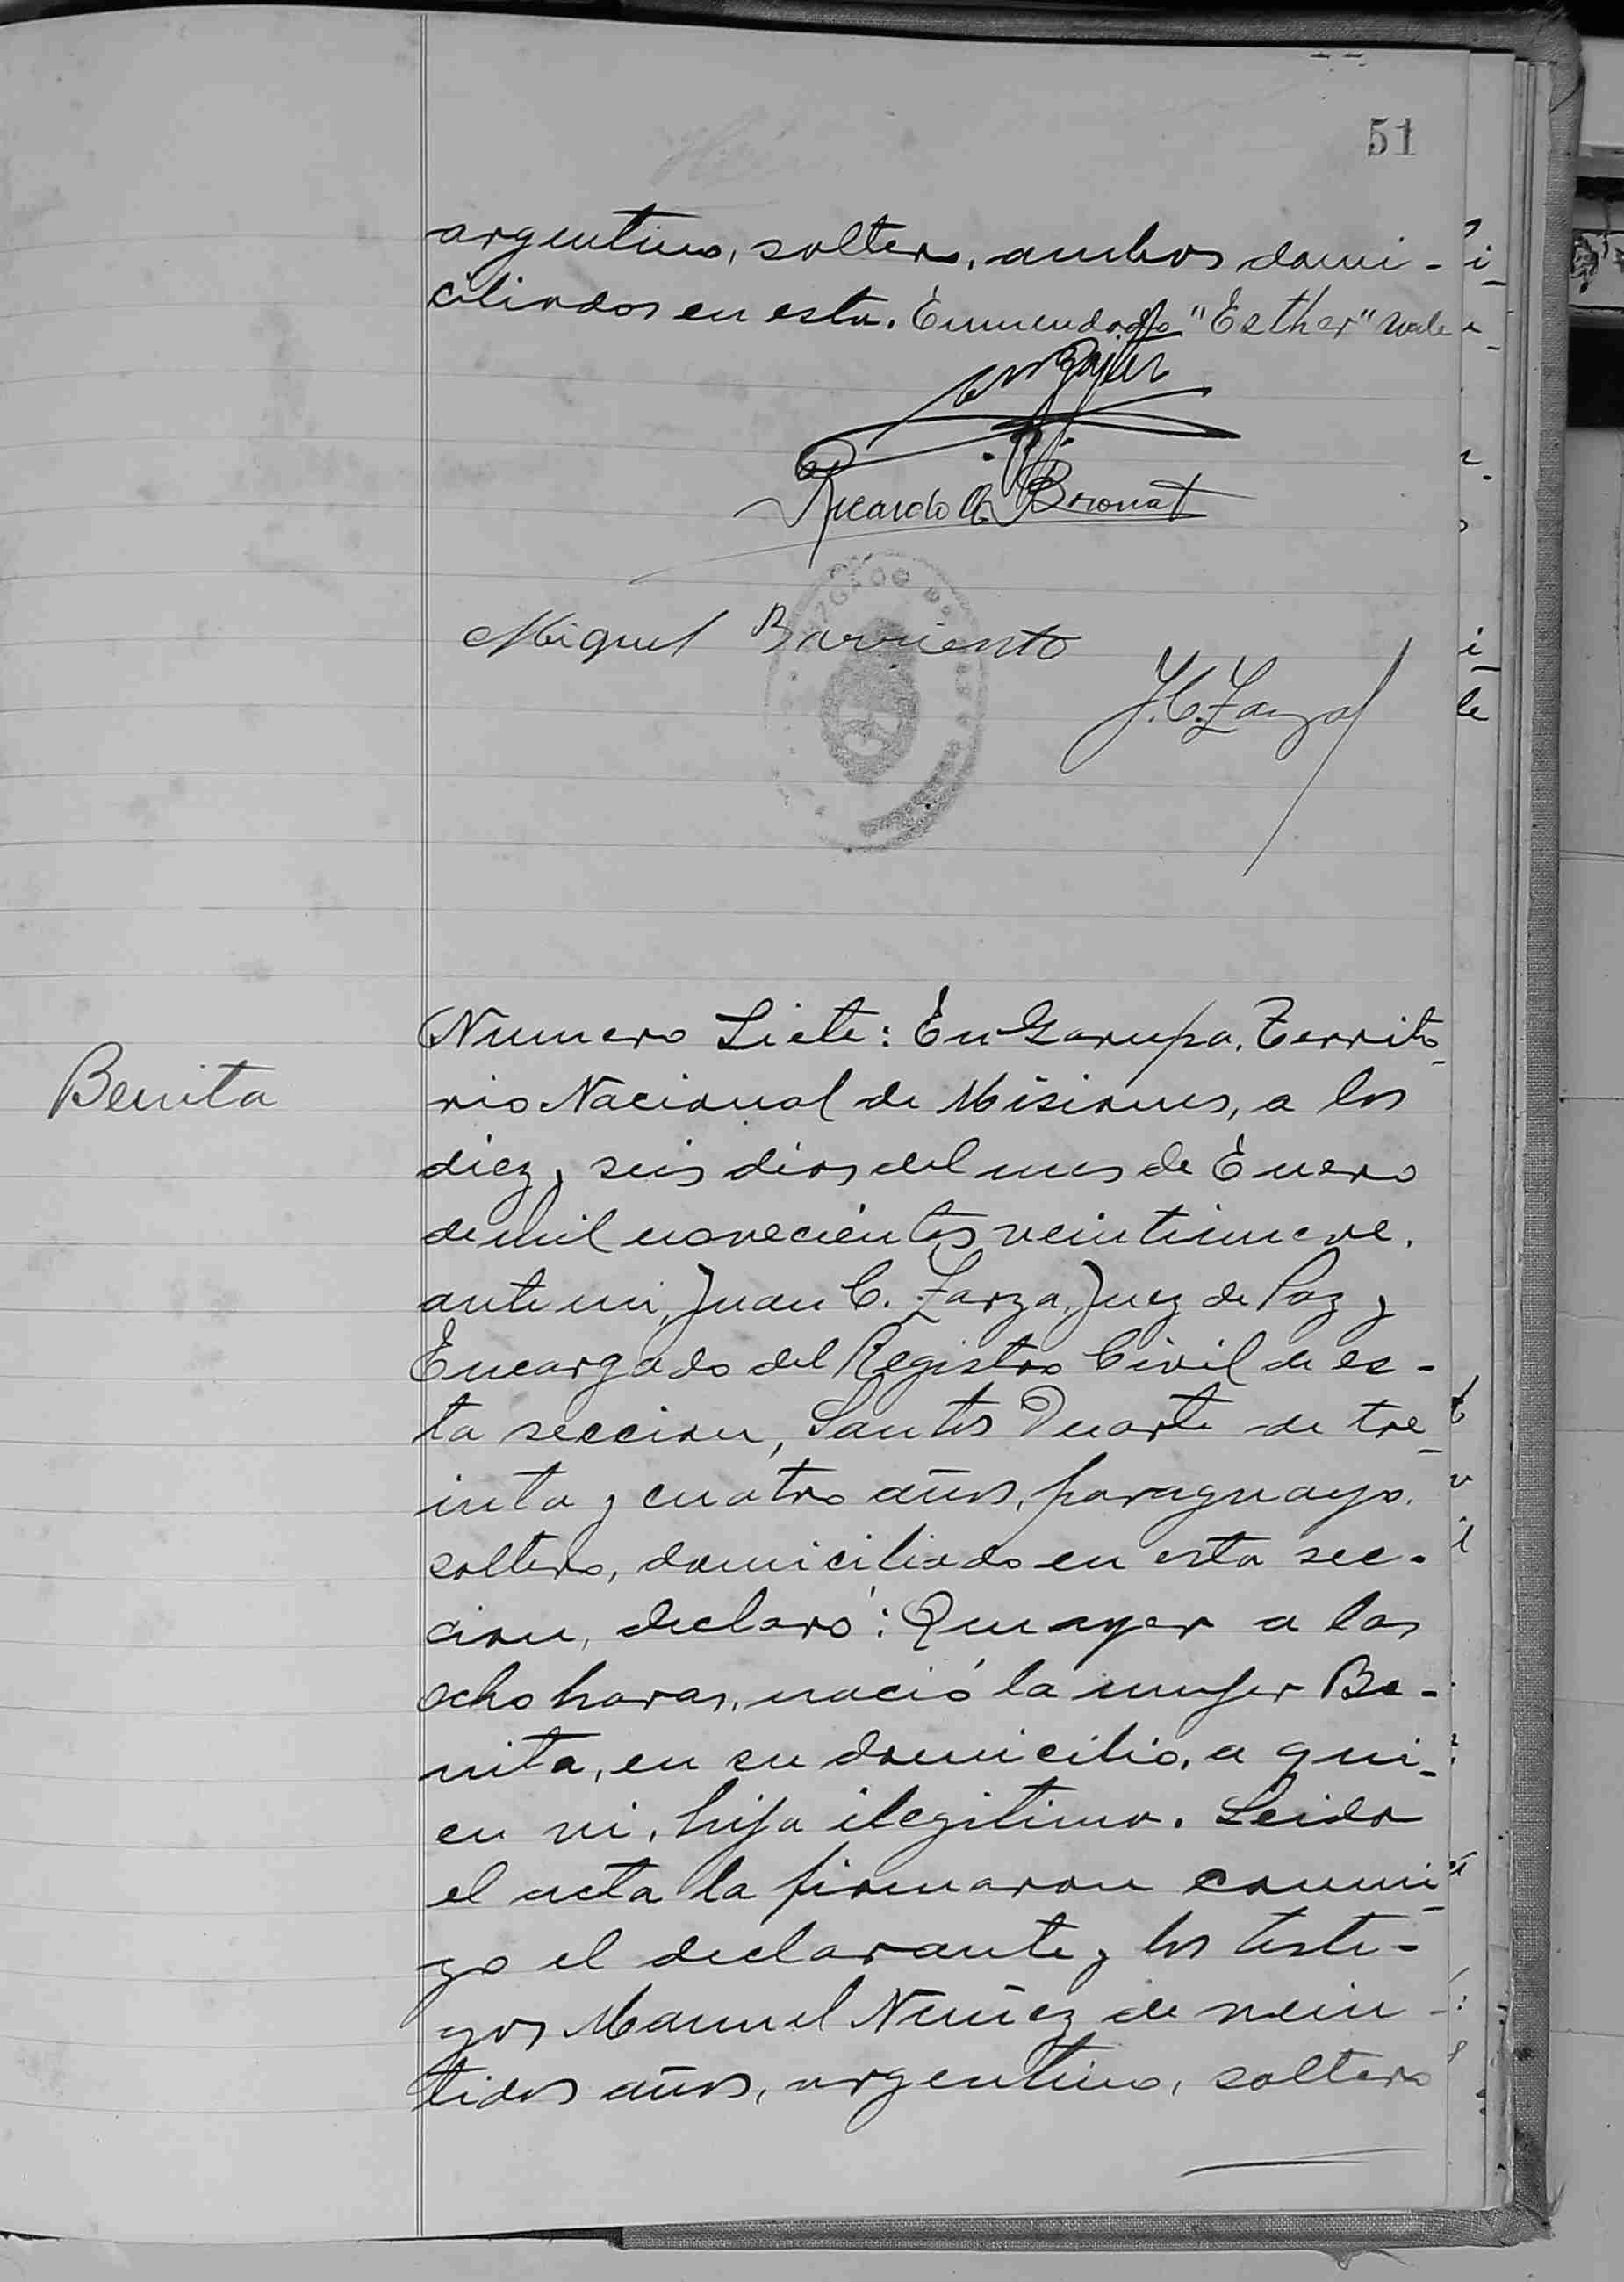 51
argentino, soltero, ambos domi-
ciliados en esta. Enmendado "Esther" vale
Ricardo A. Boronat
Miguel Barriento
J.C. Zarza
Benita
Numero Siete: En Garupa, Territo-
rio Nacional de Misiones, a los
diez y seis dias del mes de Enero
de mil novecientos veintinueve,
ante mi, Juan C. Zarza, Juez de Paz y
Encargado del Registro Civil de es-
ta seccion, Santos Duarte de tre-
inta y cuatro años, paraguayo,
soltero, domiciliado en esta sec-
cion, declaró: Que ayer a las
ocho horas, nació la mujer Be-
nita, en su domicilio, a qui-
en vi, hija ilegitima. Leida
el acta la firmaron conmi-
go el declarante y los testi-
gos Manuel Nuñez de vein-
tidos años, argentino, soltero